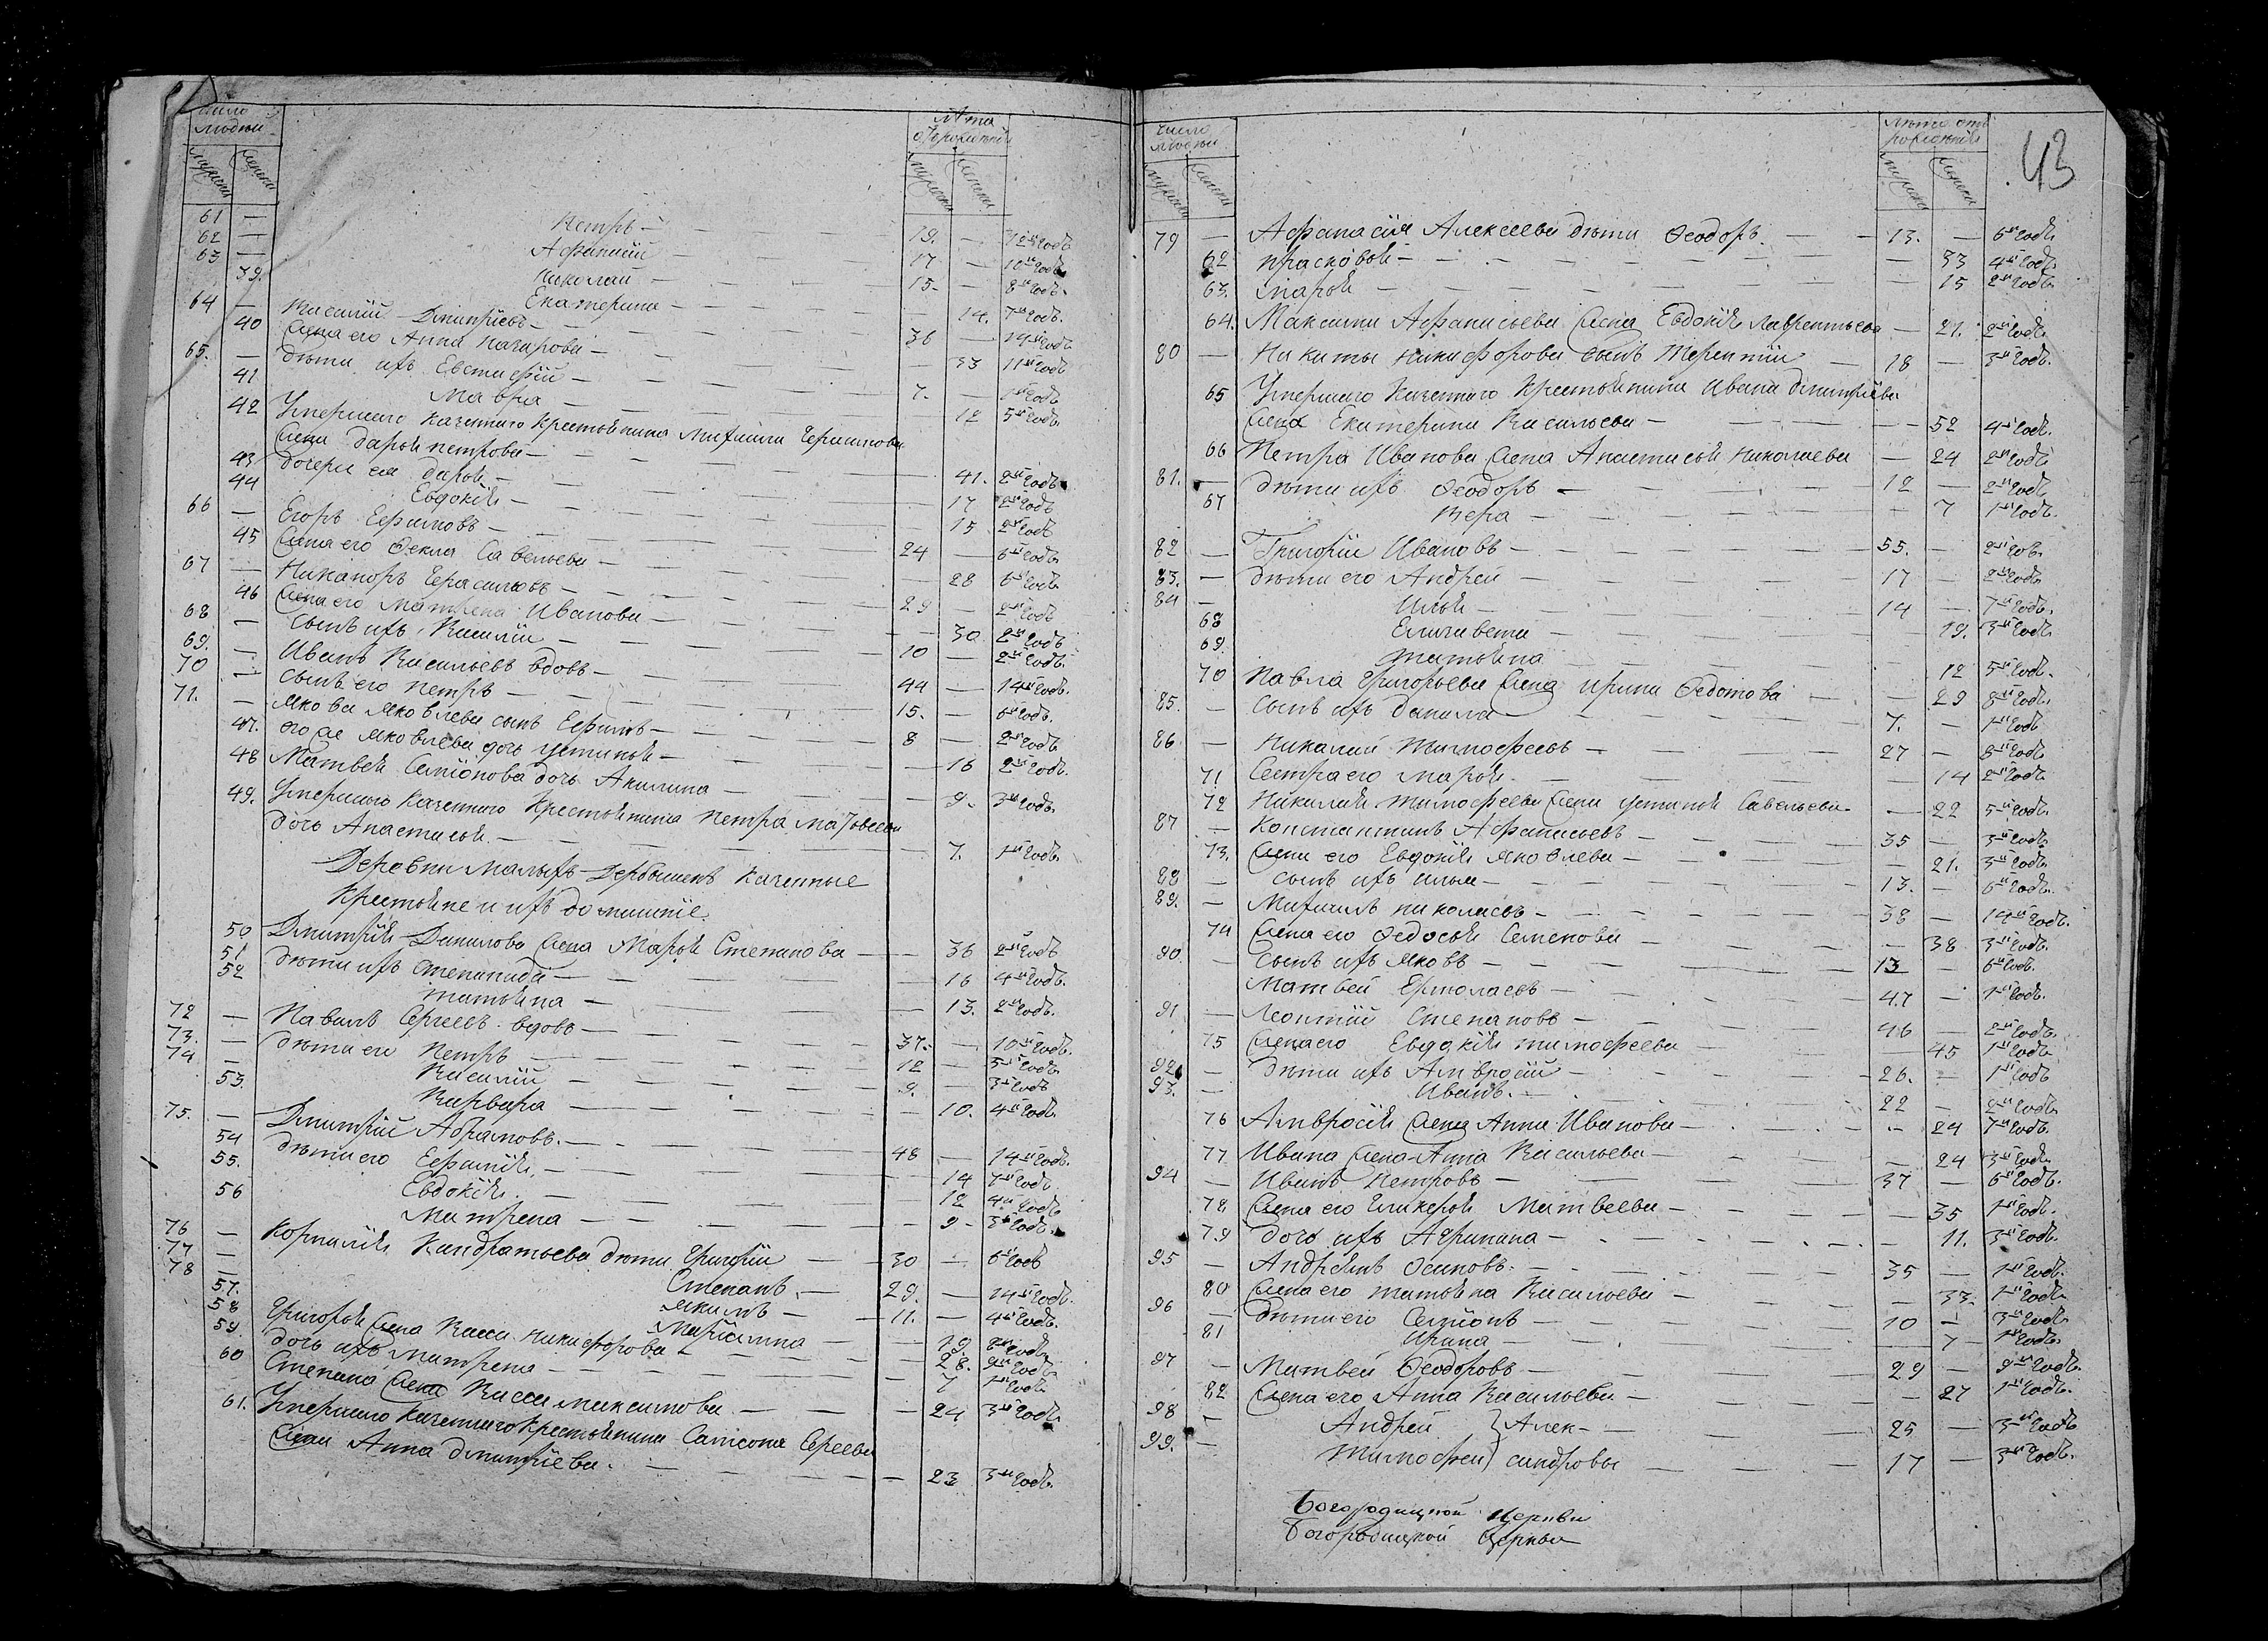 число людей
мужеска женска
лѣта отъ рожденія
мужеска женска
61 — Петръ — 19. — 12й годъ
62 — Афанасій — 17 — 10й годъ
63 — Николай — 15. — 8й годъ
39. Екатерина — 14. 7й годъ
64 — Василій Дмитріевъ — 36 — 14й годъ
40 Жена его Анна Назарова — 33 11й годъ
65. — Дѣти ихъ Евстифій — 7. — 1й годъ
41 Мавра — 12 5й годъ
42 Умершаго Казеннаго Крестьянина Михаила Герасимова
Жена Дарья Петрова — 41. 2й годъ
43 Дочери ея Дарья — 17 2й годъ
44 Евдокія — 15 2й годъ
66 — Егоръ Ефимовъ — 24 — 6й годъ
45 Жена его Фекла Савельева — 28 6й годъ
67 — Никаноръ Герасимовъ — 29 — 2й годъ
46 Жена его Матрена Иванова — 30 2й годъ
68 — Сынъ ихъ Василій — 10 — 2й годъ
69. — Иванъ Васильевъ вдовъ — 44 — 14й годъ
70 — Сынъ его Петръ — 15. — 6й годъ
71. — Якова Яковлева сынъ Ефимъ — 8 — 2й годъ
47. его же Яковлева дочь Устинья — 16 2й годъ
48 Матвея Семіонова дочь Акилина — 9. 3й годъ
49. Умершаго Казеннаго Крестьянина Петра Матвеева
дочь Анастасья — 7. 1й годъ
Деревни Малыхъ Дербышекъ Казенные
Крестьяне и ихъ домашніе.
50 Дмитрія Данилова Жена Марья Степанова — 36 2й годъ
51 Дѣти ихъ Степанида — 16 4й годъ
52 Татьяна — 13. 2й годъ
72 — Павелъ Сергеевъ вдовъ — 37. — 10й годъ
73. — Дѣти его Петръ — 12 — 5й годъ
74 — Василій — 9. — 3й годъ
53. Варвара — 10. 4й годъ
75. — Дмитрій Абрамовъ. — 48 — 14й годъ
54 Дѣти его Ефимія — 14 7й годъ
55. Евдокія — 12 4й годъ
56 Матрена — 9 3й годъ
76 — Корнилія Кандратьева дѣти Григорій — 30 — 6й годъ
77 — Степанъ — 29. — 14й годъ
78 — Якимъ — 11. — 4й годъ
57. Маріамна — 19. 8й годъ
58 Григорья Жена Васса Никифорова — 28. 9й годъ
59. Дочь ихъ Матрена — 7 1й годъ
60 Степана Жена Васса Максимова — 24 3й годъ
61. Умершаго Казеннаго Крестьянина Самсона Сергеева
Жена Анна Дмитріева. — 23 3й годъ
43
число людей
мужеска женска
лѣта отъ рожденія
мужеска женска
79 — Афанасія Алексеева дѣти Феодоръ — 13. — 6й годъ
62 Прасковья — 33 4й годъ
63. Марья — 15 2й годъ
64. Максима Афанасьева Жена Евдокія Лаврентьева — 21. 2й годъ
80 — Никиты Никифорова сынъ Терентій — 18 — 3й годъ
65 Умершаго Казеннаго Крестьянина Ивана Дмитріева
Жена Екатерина Васильева — 52 4й годъ
66 Петра Иванова Жена Анастасья Николаева — 24 2й годъ
81. — Дѣти ихъ Феодоръ — 12 — 2й годъ
67 Вера — 7 1й годъ
82 — Григорій Ивановъ — 55. — 2й годъ
83. — Дѣти его Андрей — 17 — 2й годъ
84 — Илья — 14 — 7й годъ
68 Елизавета — 19. 3й годъ
69 Татьяна — 12 5й годъ
70 Павла Григорьева Жена Ирина Федотова — 29 8й годъ
85. — Сынъ ихъ Данила — 7. — 1й годъ
86 — Николай Тимофеевъ — 27 — 8й годъ
71 Сестра его Марья — 14 2й годъ
72 Николая Тимофеева Жена Устинья Савельева — 22 5й годъ
87 — Константинъ Афанасьевъ — 35 — 3й годъ
73. Жена его Евдокія Яковлева — 21. 3й годъ
88 — Сынъ ихъ Илья — 13. — 6й годъ
89. — Михаилъ Николаевъ — 38 — 14й годъ
74 Жена его Федосья Семенова — 38 3й годъ
90. — Сынъ ихъ Яковъ — 13 — 6й годъ
Матвей Ермолаевъ — 47 — 1й годъ
91 — Леонтій Степановъ — 46 — 2й годъ
75 Жена его Евдокія Тимофеева — 45 1й годъ
92. — Дѣти ихъ Амвросій — 26. — 1й годъ
93. — Иванъ. — 22 — 2й годъ
76 Амвросія Жена Анна Иванова — 24 7й годъ
77 Ивана Жена Анна Васильева — 24 3й годъ
94 — Иванъ Петровъ — 37 — 6й годъ
78 Жена его Гликерья Матвеева — 35 1й годъ
79 Дочь ихъ Агрипина — 11. 3й годъ
95 — Андреянъ Осиповъ — 35 — 1й годъ
80 Жена его Татьяна Васильева — 33. 1й годъ
96 — Дѣти его Семіонъ — 10 — 3й годъ
81 Ирина — 7 1й годъ
97 — Матвей Феодоровъ — 29 — 9й годъ
82 Жена его Анна Васильева — 27 1й годъ
98 — Андрей } Алек- — 25 — 3й годъ
99. — Тимофей } сандровы — 17 — 3й годъ
Богородицкой Церкви
Богородицкой Церкви